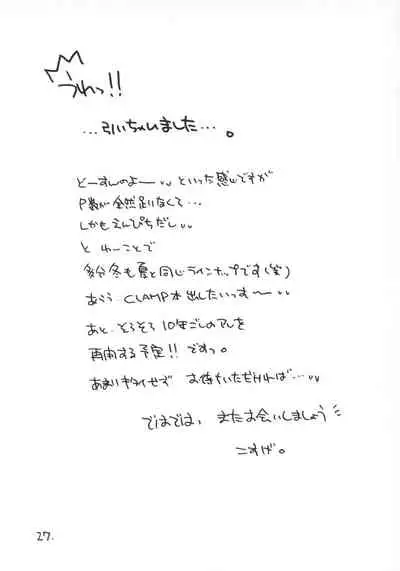 うわっ!!
…引いちゃいました…。
どーすんのよー〜といった感じですが
P数が全然足りなくて…
しかもえんぴつだし
と わーことで
多分冬も夏と同じラインナップです(笑)
あらう CLAMP本出したいっすー
あと、そろそろ10年ごしのアレを
再開する予定!! ですっ。
あまり期待せず お待ちいただければ…
ではでは、またお会いしましょう
こすげ。
27.